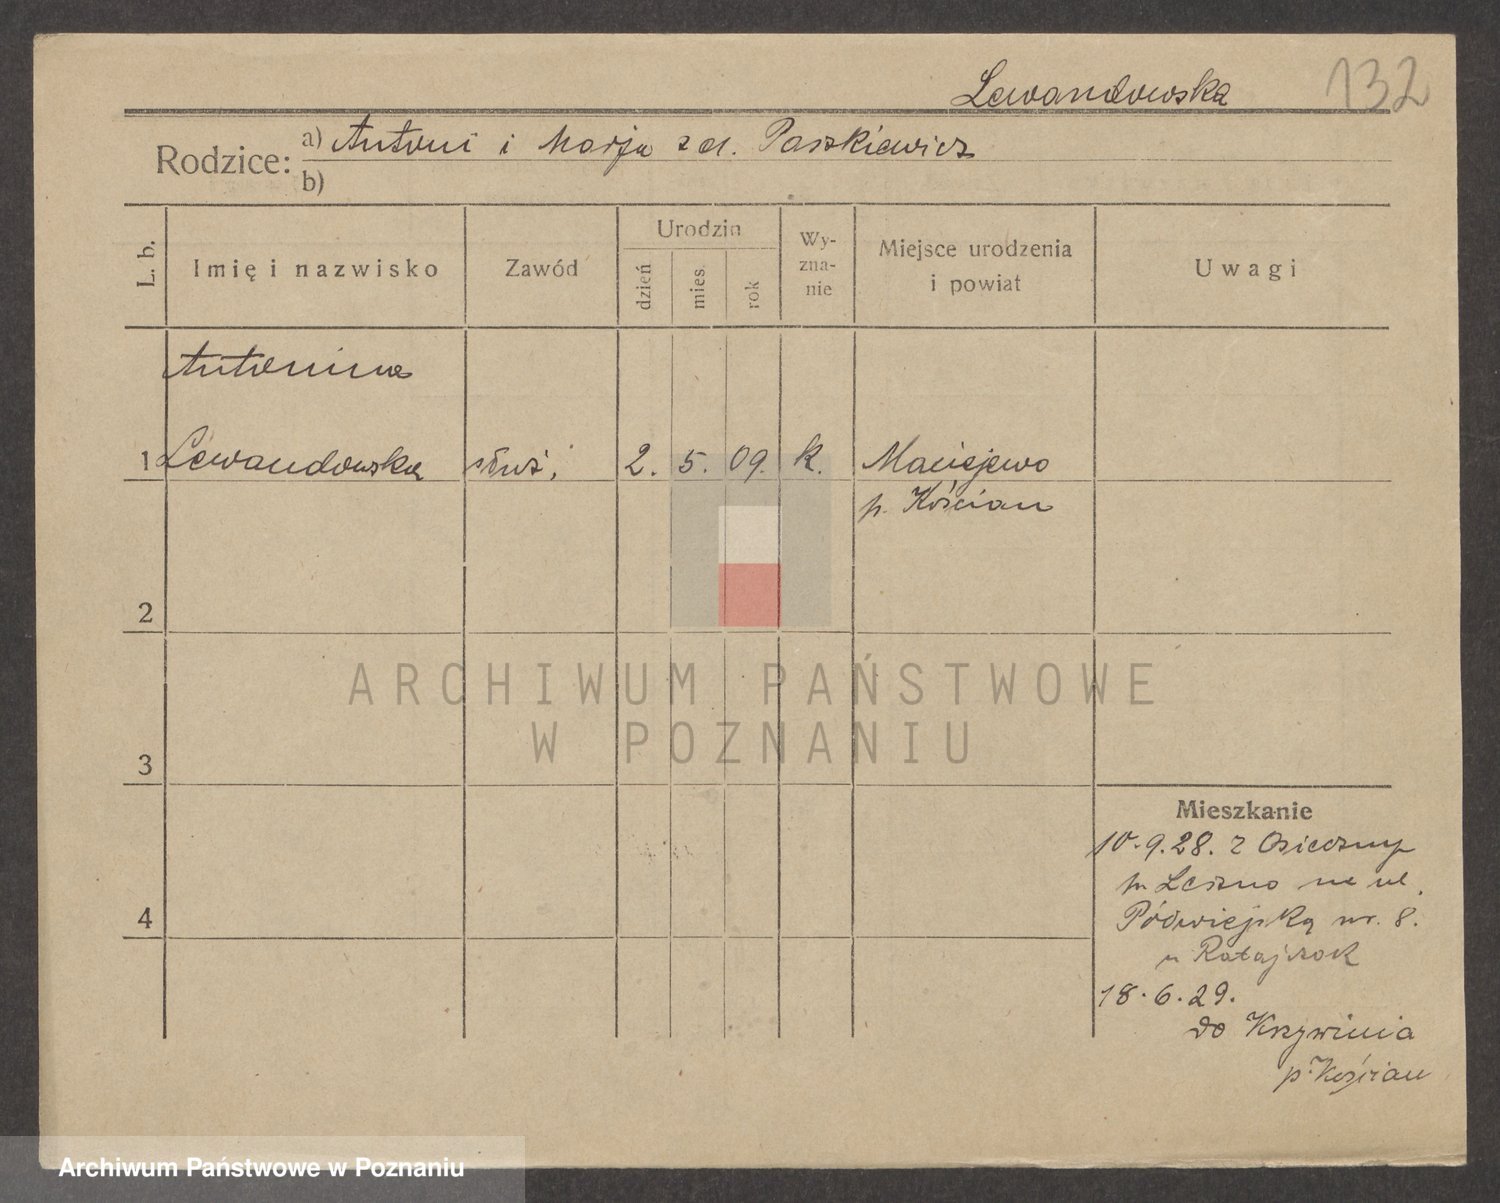 Lewandowska 132
Rodzice: a) Antoni i Marja z d. Paszkiewicz
b)
L. b.
Imię i nazwisko
Zawód
Urodzin
dzień
mies.
rok
Wy-
zna-
nie
Miejsce urodzenia
i powiat
Uwagi
Antonina
1 Lewandowska służ. 2. 5. 09. k. Maciejewo
p. Kościan
2
3
4
Mieszkanie
10.9.28. z Osieczny
p. Leszno na ul.
Podwiejską nr. 8.
u Ratajczak
18.6.29.
do Krzywinia
p. Kościan
ARCHIWUM PAŃSTWOWE
W POZNANIU
Archiwum Państwowe w Poznaniu